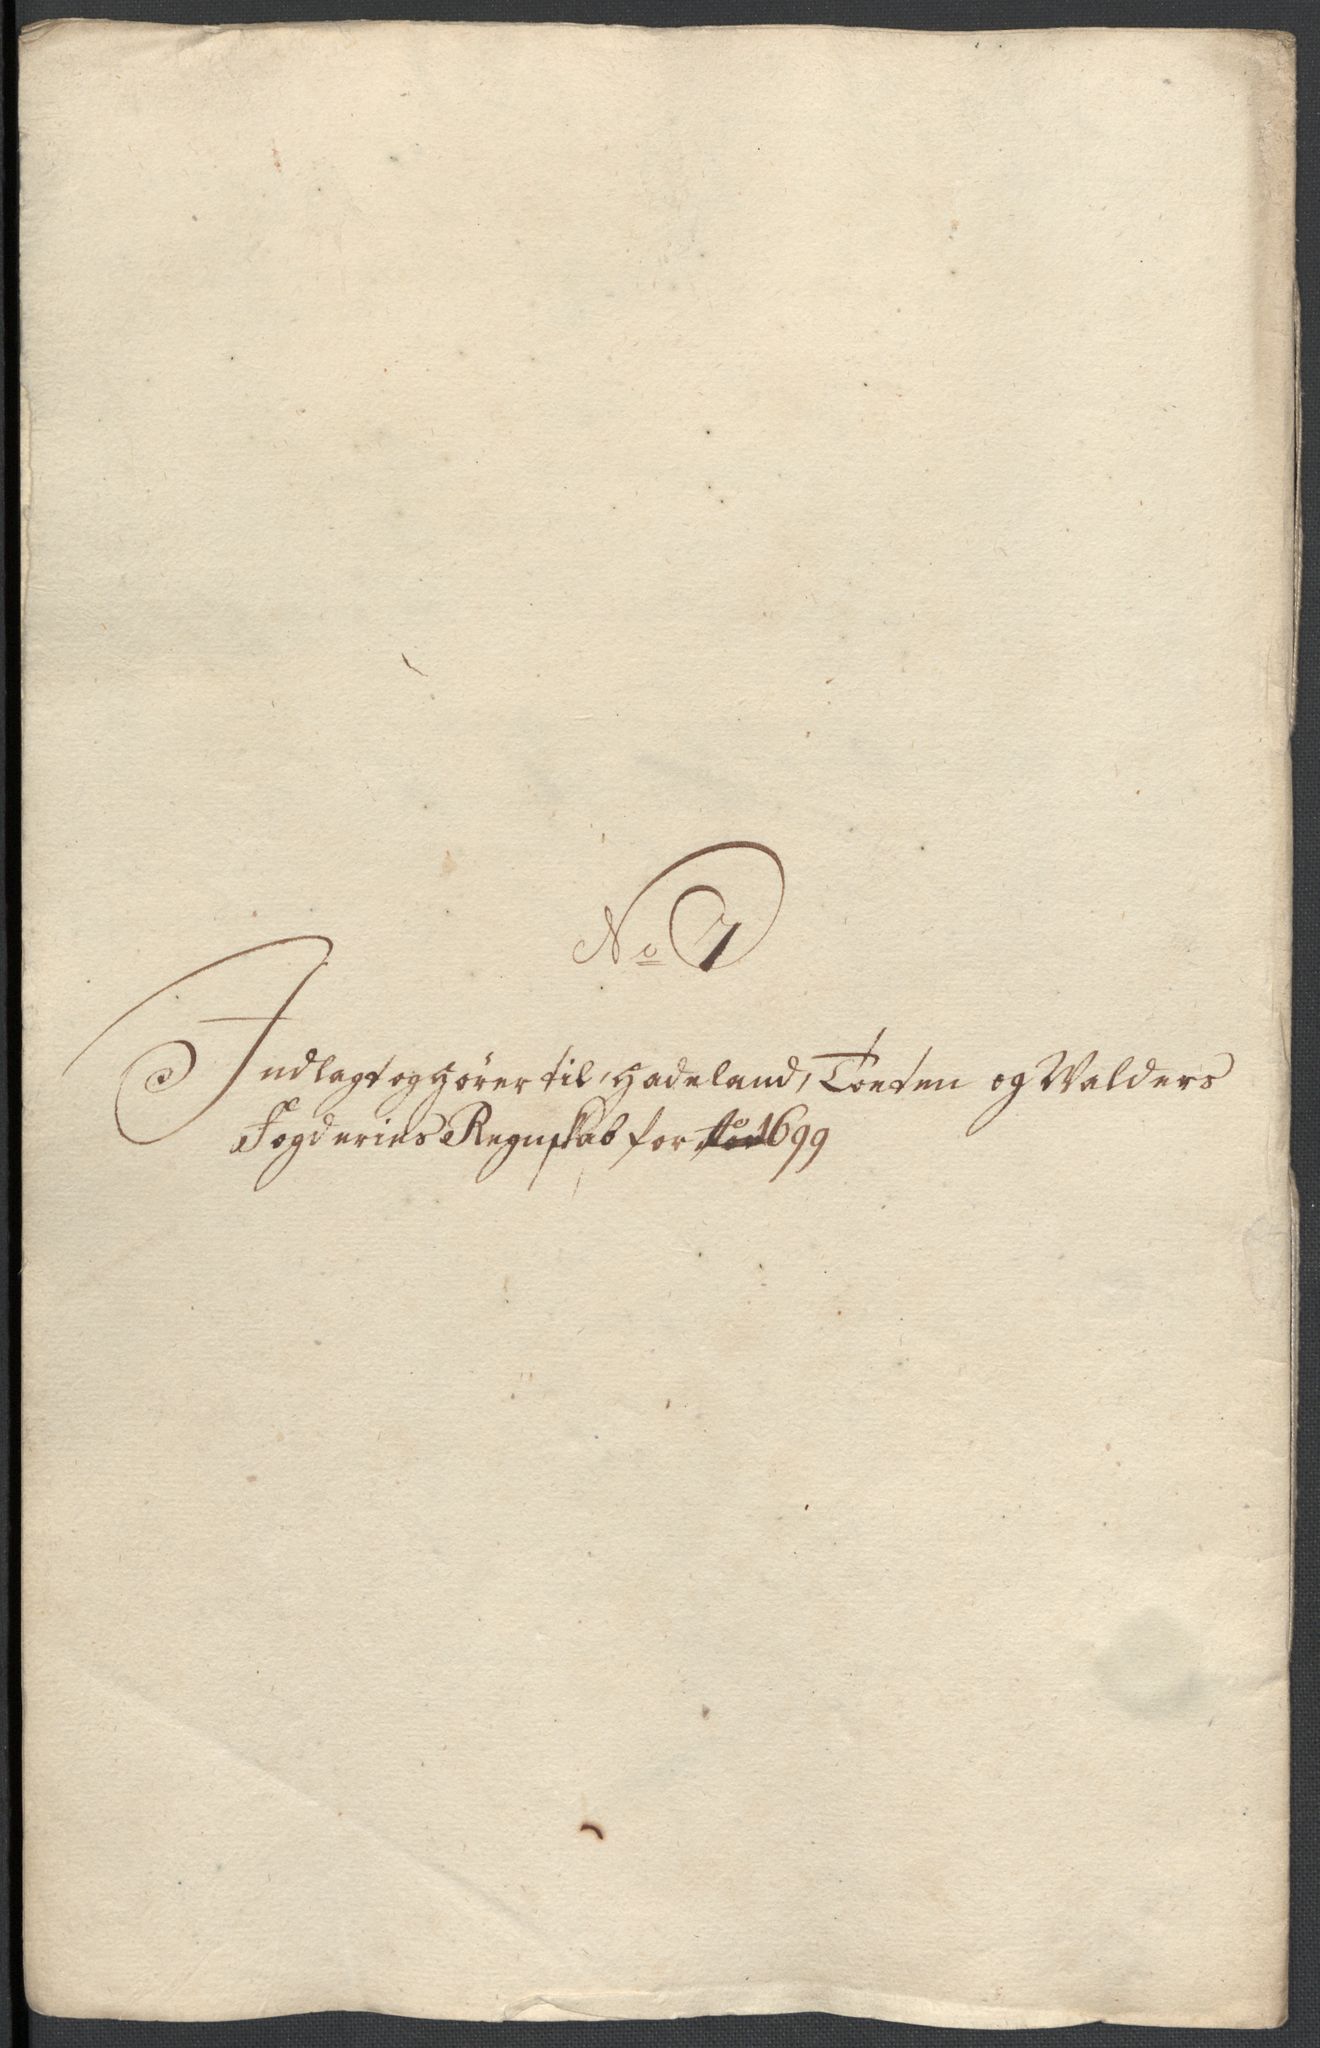 No 7
Indlagt og hörer til, Hadeland, Toeten og Walders
Fogderies Regnskab for 1699